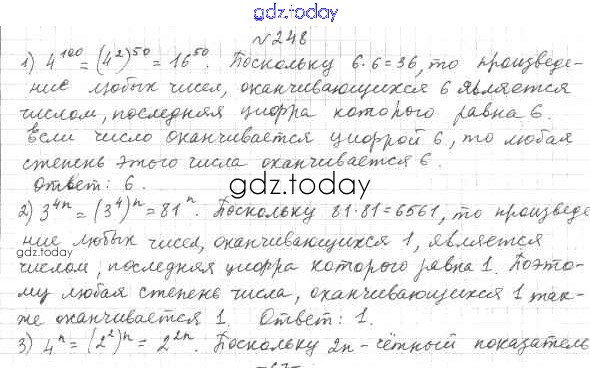 gdz.today
№248
1) 4^100 = (4^2)^50 = 16^50. Поскольку 6·6=36, то произведе-
ние любых чисел, оканчивающихся 6 является
числом, последняя цифра которого равна 6.
Если число оканчивается цифрой 6, то любая
степень этого числа оканчивается 6.
Ответ: 6.
gdz.today
2) 3^4n = (3^4)^n = 81^n. Поскольку 81·81=6561, то произведе
ние любых чисел, оканчивающихся 1, является
gdz.today
числом, последняя цифра которого равна 1. Поэто-
му любая степень числа, оканчивающихся 1 так-
же оканчивается 1. Ответ: 1.
3) 4^n = (2^2)^n = 2^2n. Поскольку 2n - чётный показатель